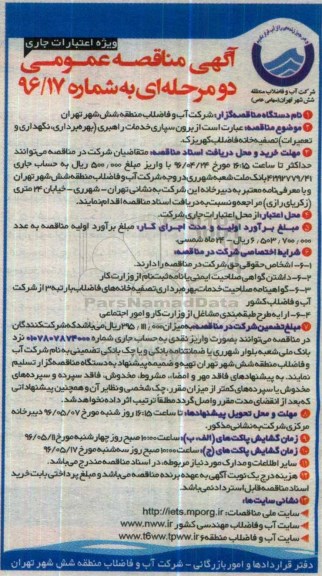 ویژه اعتبارات جاری
آگهی مناقصه عمومی
دو مرحله‌ای به شماره ۹۶/۱۷
شرکت آب و فاضلاب منطقه
شش شهر تهران (سهامی خاص)
۱ نام دستگاه مناقصه‌گزار: شرکت آب و فاضلاب منطقه شش شهر تهران
۲ موضوع مناقصه: عبارت است از برون سپاری خدمات راهبری (بهره‌برداری، نگهداری و
تعمیرات) تصفیه خانه فاضلاب کهریزک
۳ مهلت خرید و محل دریافت اسناد مناقصه: متقاضیان شرکت در مناقصه می‌توانند
حداکثر تا ساعت ۱۶:۱۵ مورخ ۹۶/۰۴/۲۴ با واریز مبلغ ۵۰۰٫۰۰۰ ریال به حساب جاری
بانک ملت شعبه شهرری در وجه شرکت آب و فاضلاب منطقه شش شهر تهران
و با معرفی‌نامه معتبر به دبیرخانه این شرکت به نشانی تهران - شهرری - خیابان ۲۴ متری
(زکریای رازی) مراجعه و نسبت به دریافت اسناد مناقصه اقدام نمایند.
۴ محل اعتبار: از محل اعتبارات جاری شرکت.
۵ مبلغ برآورد اولیه و مدت اجرای کار: مبلغ برآورد اولیه مناقصه به عدد
۶٫۵۰۳٫۷۰۰٫۰۰۰ ریال - ۲۴ ماه شمسی.
۶ شرایط اختصاصی شرکت در مناقصه:
۶-۱- اشخاص حقوقی حق شرکت در مناقصه را دارند.
۶-۲- داشتن گواهی صلاحیت ایمنی یا نامه ثبت نام از وزارت کار
۶-۳- گواهینامه صلاحیت خدمات بهره‌برداری تصفیه خانه‌های فاضلاب با رتبه ۳ از شرکت
آب و فاضلاب کشور
۶-۴- ارایه طرح طبقه‌بندی مشاغل از وزارت کار و امور اجتماعی
۷ مبلغ تضمین شرکت در مناقصه: به میزان ریال می‌باشد که شرکت‌کنندگان
در مناقصه می‌توانند بصورت واریز نقدی به حساب جاری شماره ۰۱۰۷۸۰۷۸۷۴۰۰۰ نزد
بانک ملی شعبه بلوار شهرری یا ضمانتنامه بانکی و یا چک بانکی تضمینی به نام شرکت آب
و فاضلاب منطقه شش شهر تهران تهیه و ضمیمه پیشنهاد به دستگاه مناقصه‌گزار تسلیم
نمایند. به پیشنهادهای فاقد مهر و امضا، مشروط، مخدوش، فاقد سپرده و سپرده‌های
مخدوش یا سپرده‌های کمتر از میزان مقرر، چک شخصی و نظایر آن و همچنین پیشنهاداتی
که بعد از انقضای مدت مقرر واصل گردد مطلقاً ترتیب اثر داده نخواهد شد.
۸ مهلت و محل تحویل پیشنهادها: تا ساعت ۱۶:۱۵ روز شنبه مورخ ۹۶/۰۵/۰۷ دبیرخانه
مرکزی شرکت به نشانی مذکور.
۹ زمان گشایش پاکت‌های (الف، ب): ساعت ۱۰:۰۰ صبح روز چهارشنبه مورخ ۹۶/۰۵/۱۱
۱۰ زمان گشایش پاکت‌های (ج): ساعت ۱۰:۰۰ صبح روز سه‌شنبه مورخ ۹۶/۰۵/۱۷
۱۱ سایر اطلاعات و مدارک مورد نیاز مربوطه، در اسناد مناقصه مندرج می‌باشد.
۱۲ هزینه درج یک نوبت آگهی به عهده برنده مناقصه می‌باشد و مبلغ پرداختی بابت خرید
اسناد مناقصه قابل استرداد نمی‌باشد.
۱۳ نشانی سایت‌ها:
سایت ملی مناقصات: http://iets.mporg.ir
سایت آب و فاضلاب مهندسی کشور www.nww.ir
سایت آب و فاضلاب منطقه ۶ www.t6ww.tpww.ir
دفتر قراردادها و امور بازرگانی - شرکت آب و فاضلاب منطقه شش شهر تهران
ParsNamadData